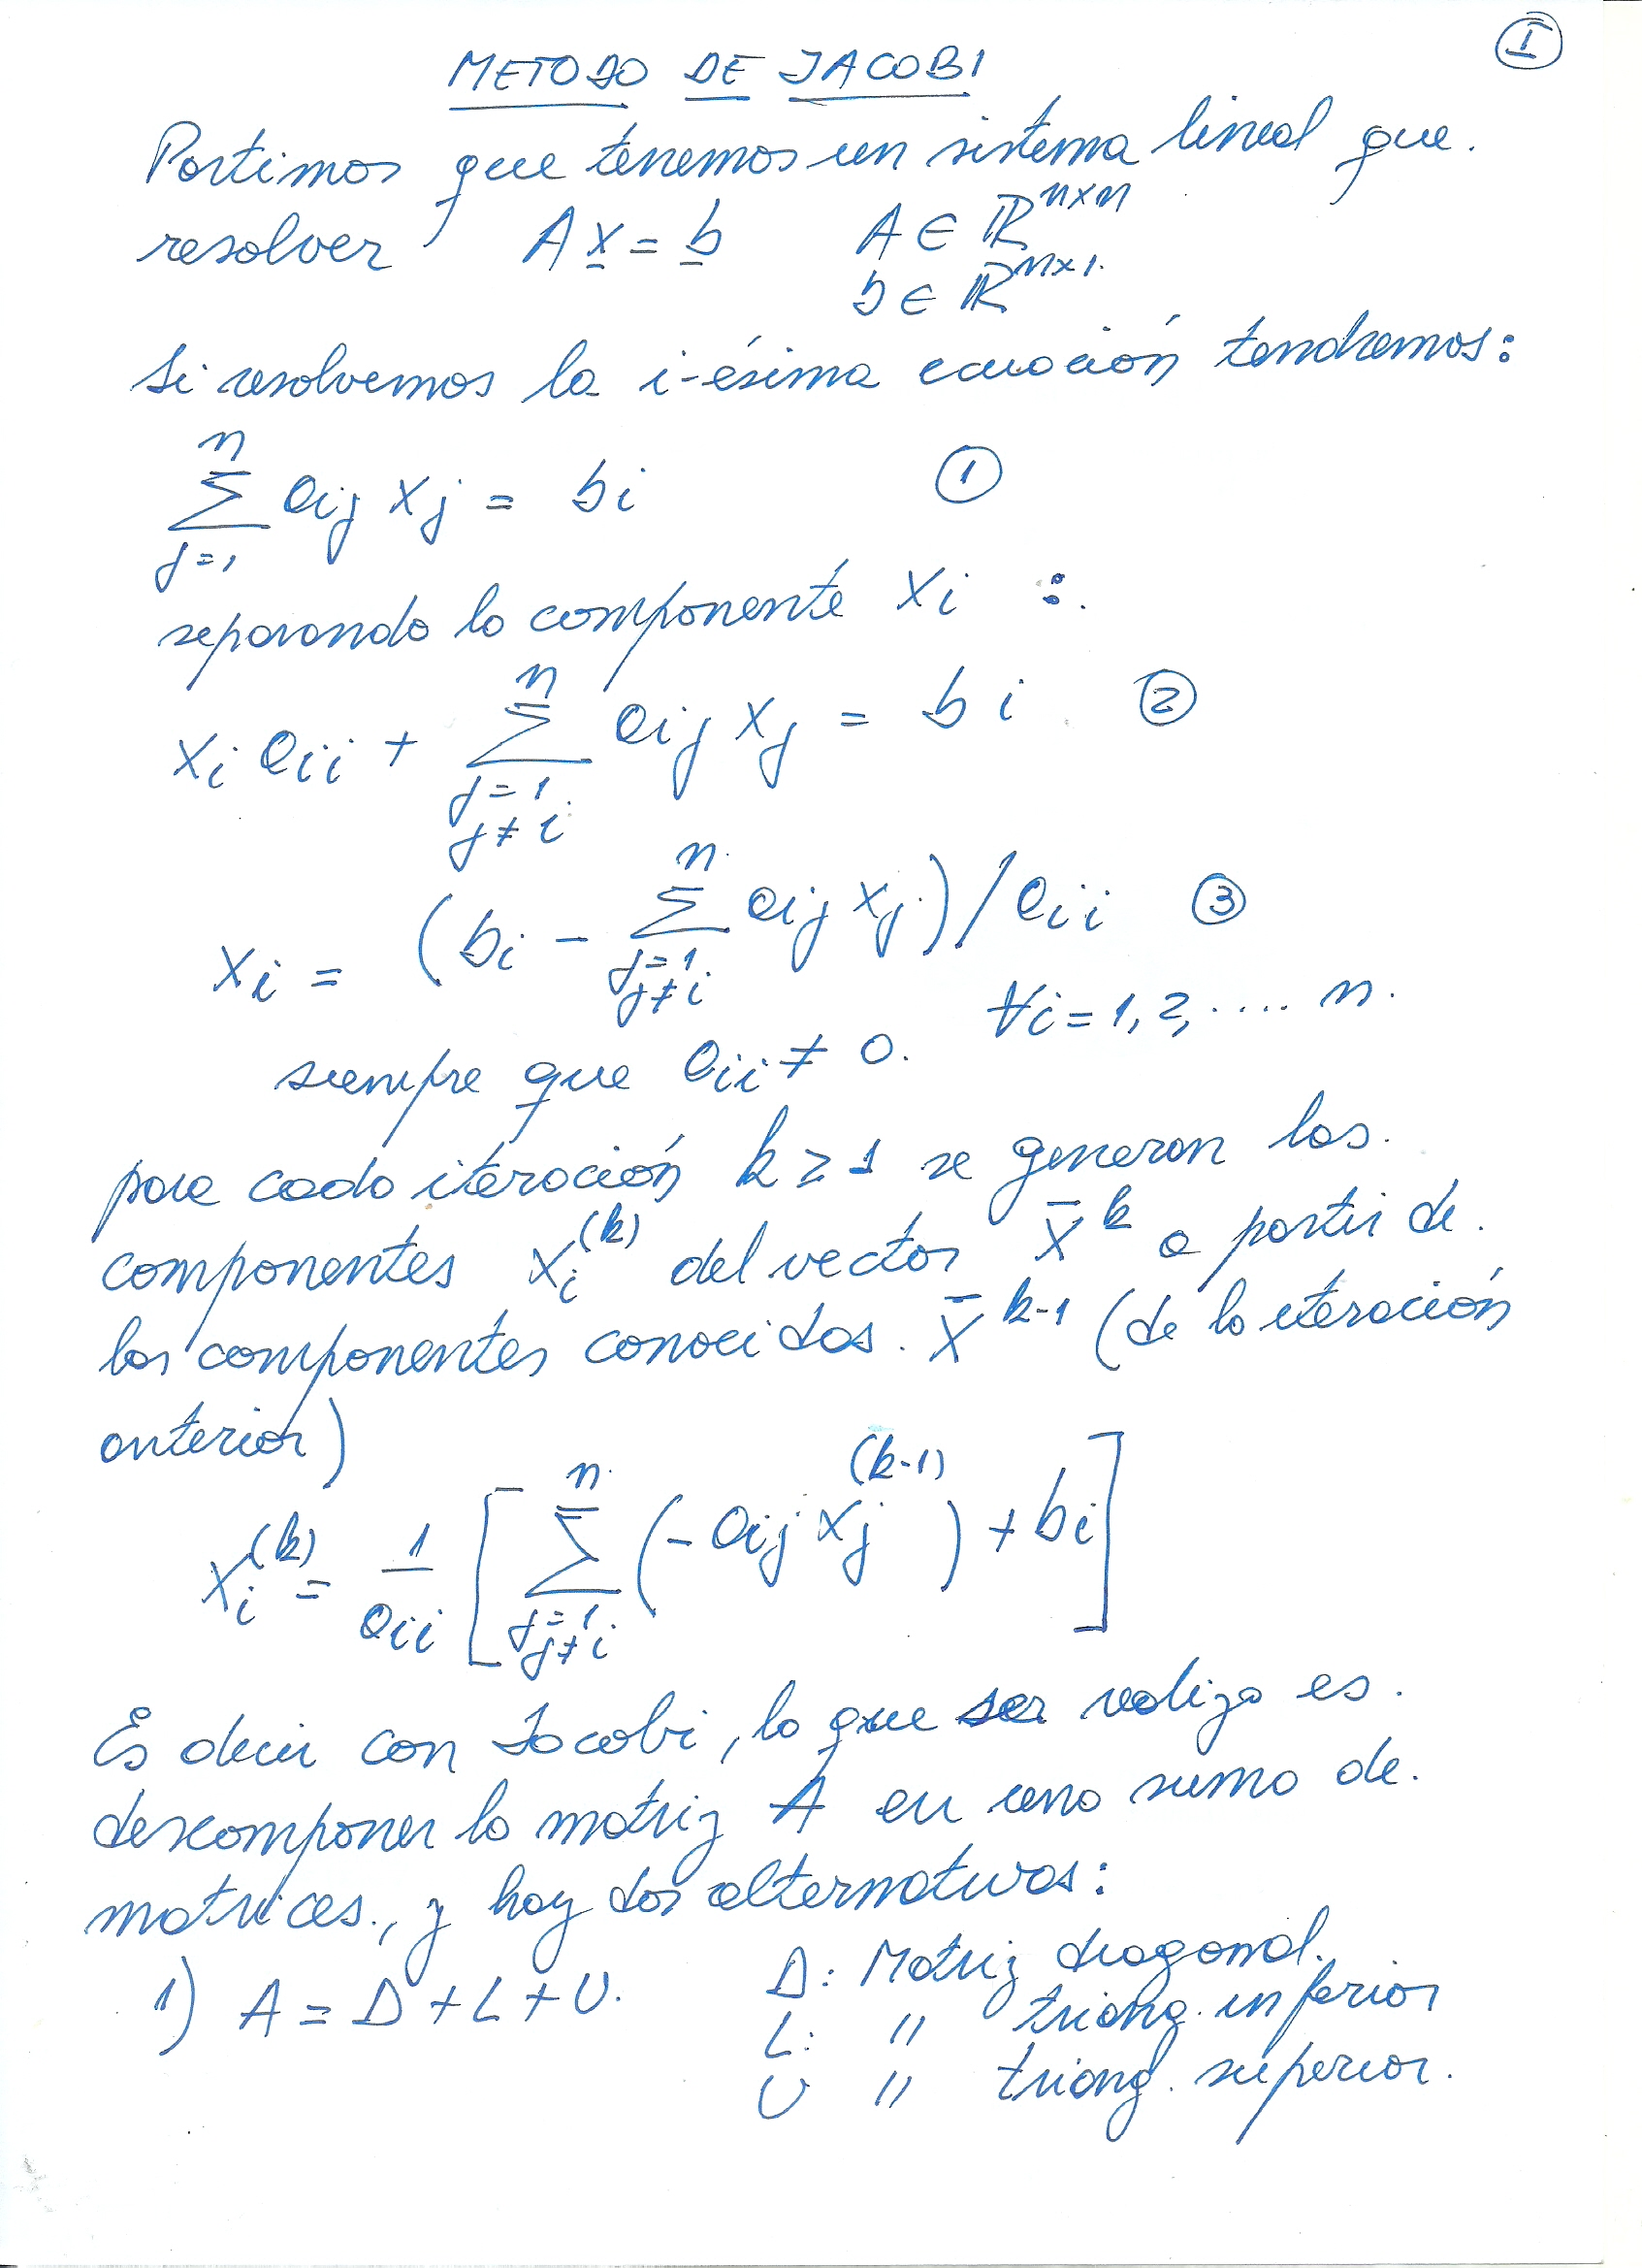 I
METODO DE JACOBI
Partimos que tenemos un sistema lineal que.
resolver A x = b A ∈ ℝ^{n×n}
b ∈ ℝ^{n×1}.
Si resolvemos la i-ésima ecuación tendremos:
\sum_{j=1}^{n} a_{ij} x_j = b_i ①
separando la componente x_i :.
x_i a_{ii} + \sum_{j=1, j≠i}^{n} a_{ij} x_j = b_i ②
x_i = (b_i - \sum_{j=1, j≠i}^{n} a_{ij} x_j) / a_{ii} ③
siempre que a_{ii} ≠ 0. ∀i = 1, 2, .... n.
para cada iteración k ≥ 1 se generan las.
componentes x_i^{(k)} del vector x̄^k a partir de.
las componentes conocidas. x̄^{k-1} (de la iteración
anterior)
x_i^{(k)} = \frac{1}{a_{ii}} [ \sum_{j=1, j≠i}^{n} (-a_{ij} x_j^{(k-1)}) + b_i ]
Es decir con Jacobi, lo que se realiza es.
descomponer la matriz A en una suma de.
matrices., y hay dos alternativas:
1) A = D + L + U. D: Matriz diagonal.
L: " triang. inferior
U " triang. superior.